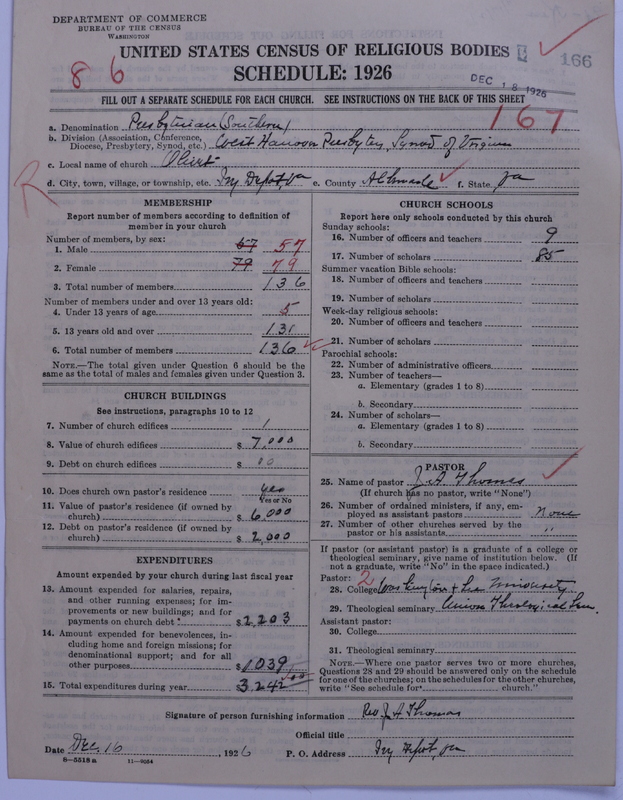 DEPARTMENT OF COMMERCE
BUREAU OF THE CENSUS
WASHINGTON
UNITED STATES CENSUS OF RELIGIOUS BODIES
166
8 6
SCHEDULE: 1926
DEC 18 1926
FILL OUT A SEPARATE SCHEDULE FOR EACH CHURCH. SEE INSTRUCTIONS ON THE BACK OF THIS SHEET
167
a. Denomination Presbyterian (Southern)
b. Division (Association, Conference, Diocese, Presbytery, Synod, etc.) West Hanover Presbytery, Synod of Virginia
c. Local name of church Olivet
R
d. City, town, village, or township, etc. Ivy Depot, Va e. County Albemarle f. State Va
MEMBERSHIP
Report number of members according to definition of member in your church
Number of members, by sex:
1. Male 67 57
2. Female 79 79
3. Total number of members 136
Number of members under and over 13 years old:
4. Under 13 years of age 5
5. 13 years old and over 131
6. Total number of members 136
NOTE.—The total given under Question 6 should be the same as the total of males and females given under Question 3.
CHURCH BUILDINGS
See instructions, paragraphs 10 to 12
7. Number of church edifices 1
8. Value of church edifices $ 7,000
9. Debt on church edifices $ 00
10. Does church own pastor's residence yes
Yes or No
11. Value of pastor's residence (if owned by church) $ 6,000
12. Debt on pastor's residence (if owned by church) $ 2,000
EXPENDITURES
Amount expended by your church during last fiscal year
13. Amount expended for salaries, repairs, and other running expenses; for improvements or new buildings; and for payments on church debt $ 2203
14. Amount expended for benevolences, including home and foreign missions; for denominational support; and for all other purposes $ 1039
15. Total expenditures during year $ 3242
CHURCH SCHOOLS
Report here only schools conducted by this church
Sunday schools:
16. Number of officers and teachers 9
17. Number of scholars 85
Summer vacation Bible schools:
18. Number of officers and teachers
19. Number of scholars
Week-day religious schools:
20. Number of officers and teachers
21. Number of scholars
Parochial schools:
22. Number of administrative officers
23. Number of teachers—
a. Elementary (grades 1 to 8)
b. Secondary
24. Number of scholars—
a. Elementary (grades 1 to 8)
b. Secondary
PASTOR
25. Name of pastor J. A. Thomas
(If church has no pastor, write "None")
26. Number of ordained ministers, if any, employed as assistant pastors none
27. Number of other churches served by the pastor or his assistants "
If pastor (or assistant pastor) is a graduate of a college or theological seminary, give name of institution below. (If not a graduate, write "No" in the space indicated.)
Pastor: 2
28. College Washington & Lee University
29. Theological seminary Union Theological Sem.
Assistant pastor:
30. College
31. Theological seminary
NOTE.—Where one pastor serves two or more churches, Questions 28 and 29 should be answered only on the schedule for one of the churches; on the schedules for the other churches, write "See schedule for church."
Signature of person furnishing information Rev J. A. Thomas
Official title
Date Dec. 16, 1926 P. O. Address Ivy Depot, Va
8—5518 a 11—9054